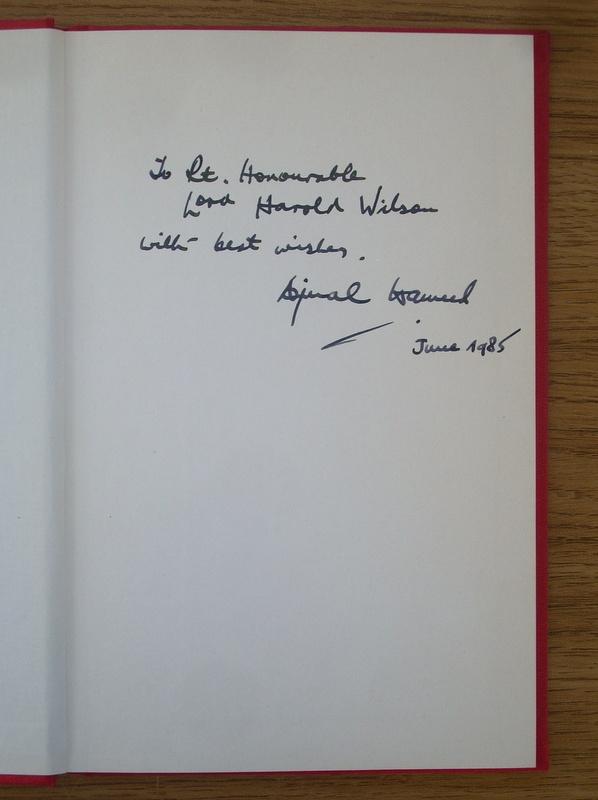 To Rt. Honourable
Lord Harold Wilson
with best wishes.
Ajmal Hameed
June 1985